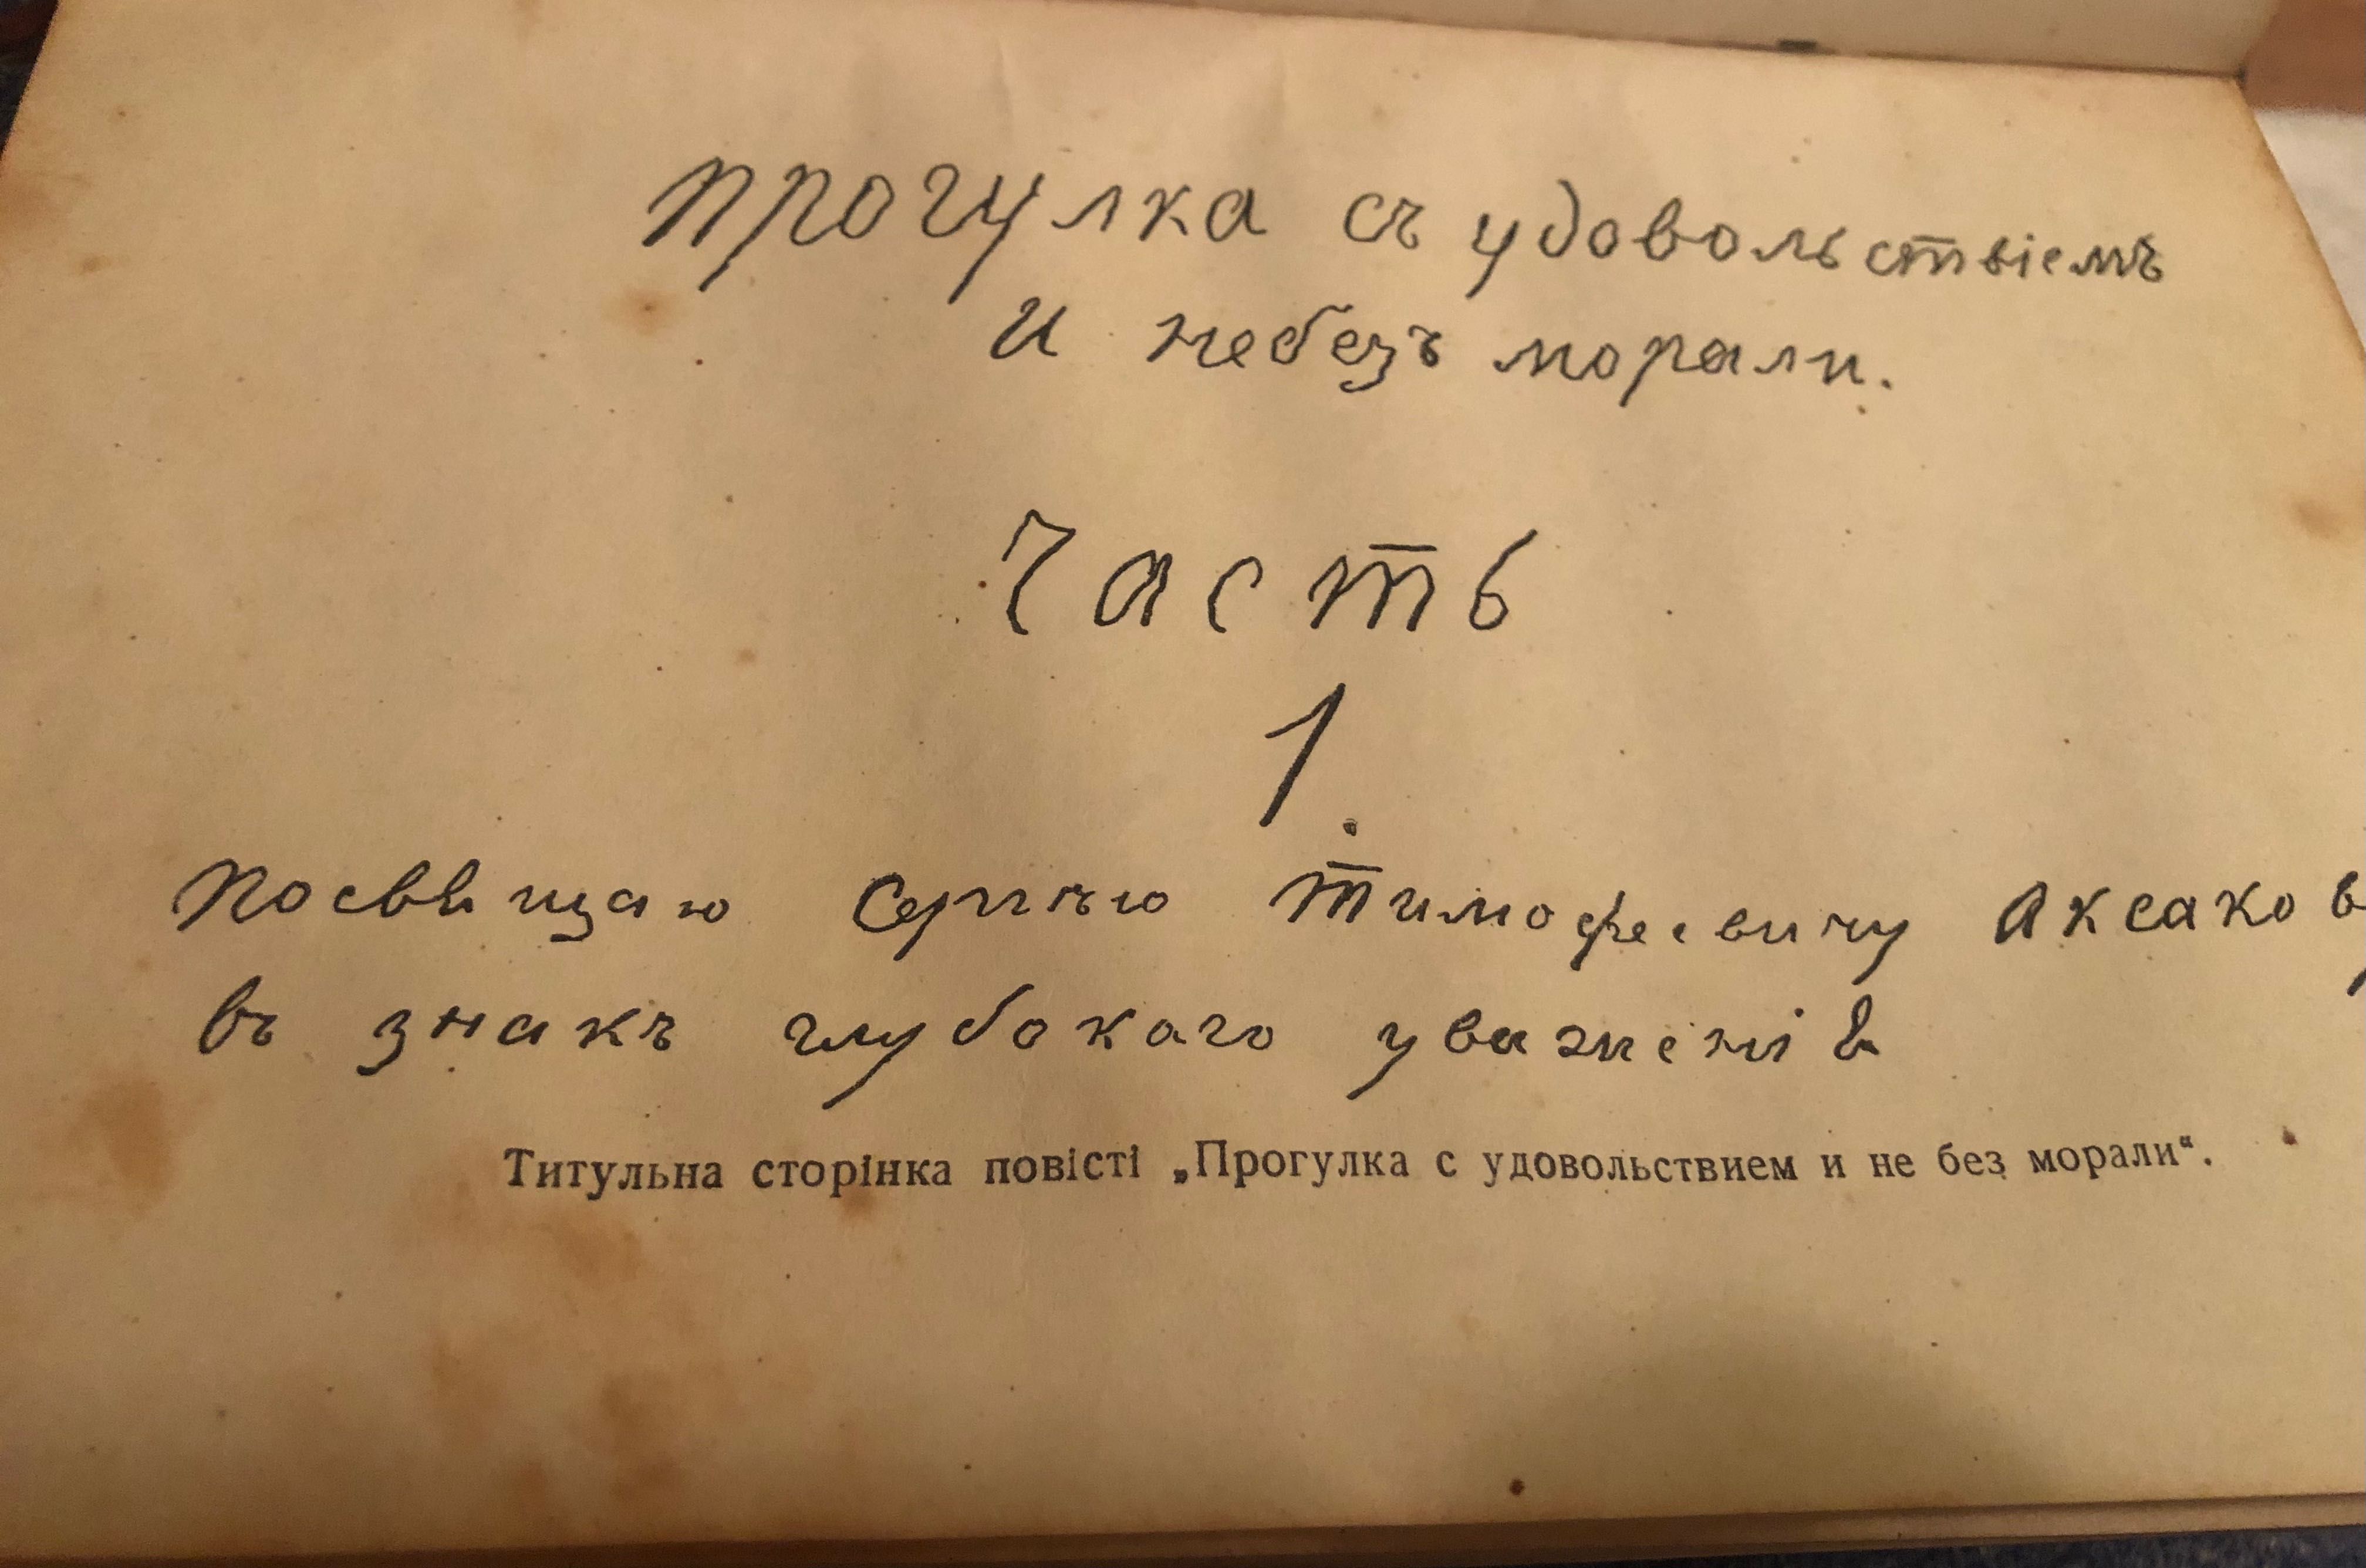 Прогулка съ удовольствіемъ
и небезъ морали.
Часть
1.
Посвѣщаю Сергѣю Тимофеевичу Аксакову
въ знакъ глубокаго уваженiѣ
Титульна сторінка повісті „Прогулка с удовольствием и не без морали“.